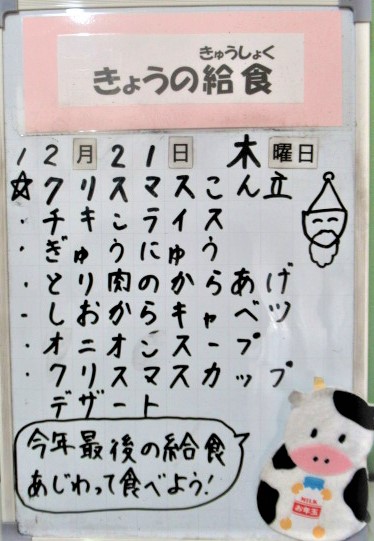 きゅうしょく
きょうの給食
12月21日 木曜日
☆クリスマスこん立
・チキンライス
・ぎゅうにゅう
・とり肉のからあげ
・しおからキャベツ
・オニオンスープ
・クリスマスカップ
デザート
今年最後の給食
あじわって食べよう!
MILK
お年玉